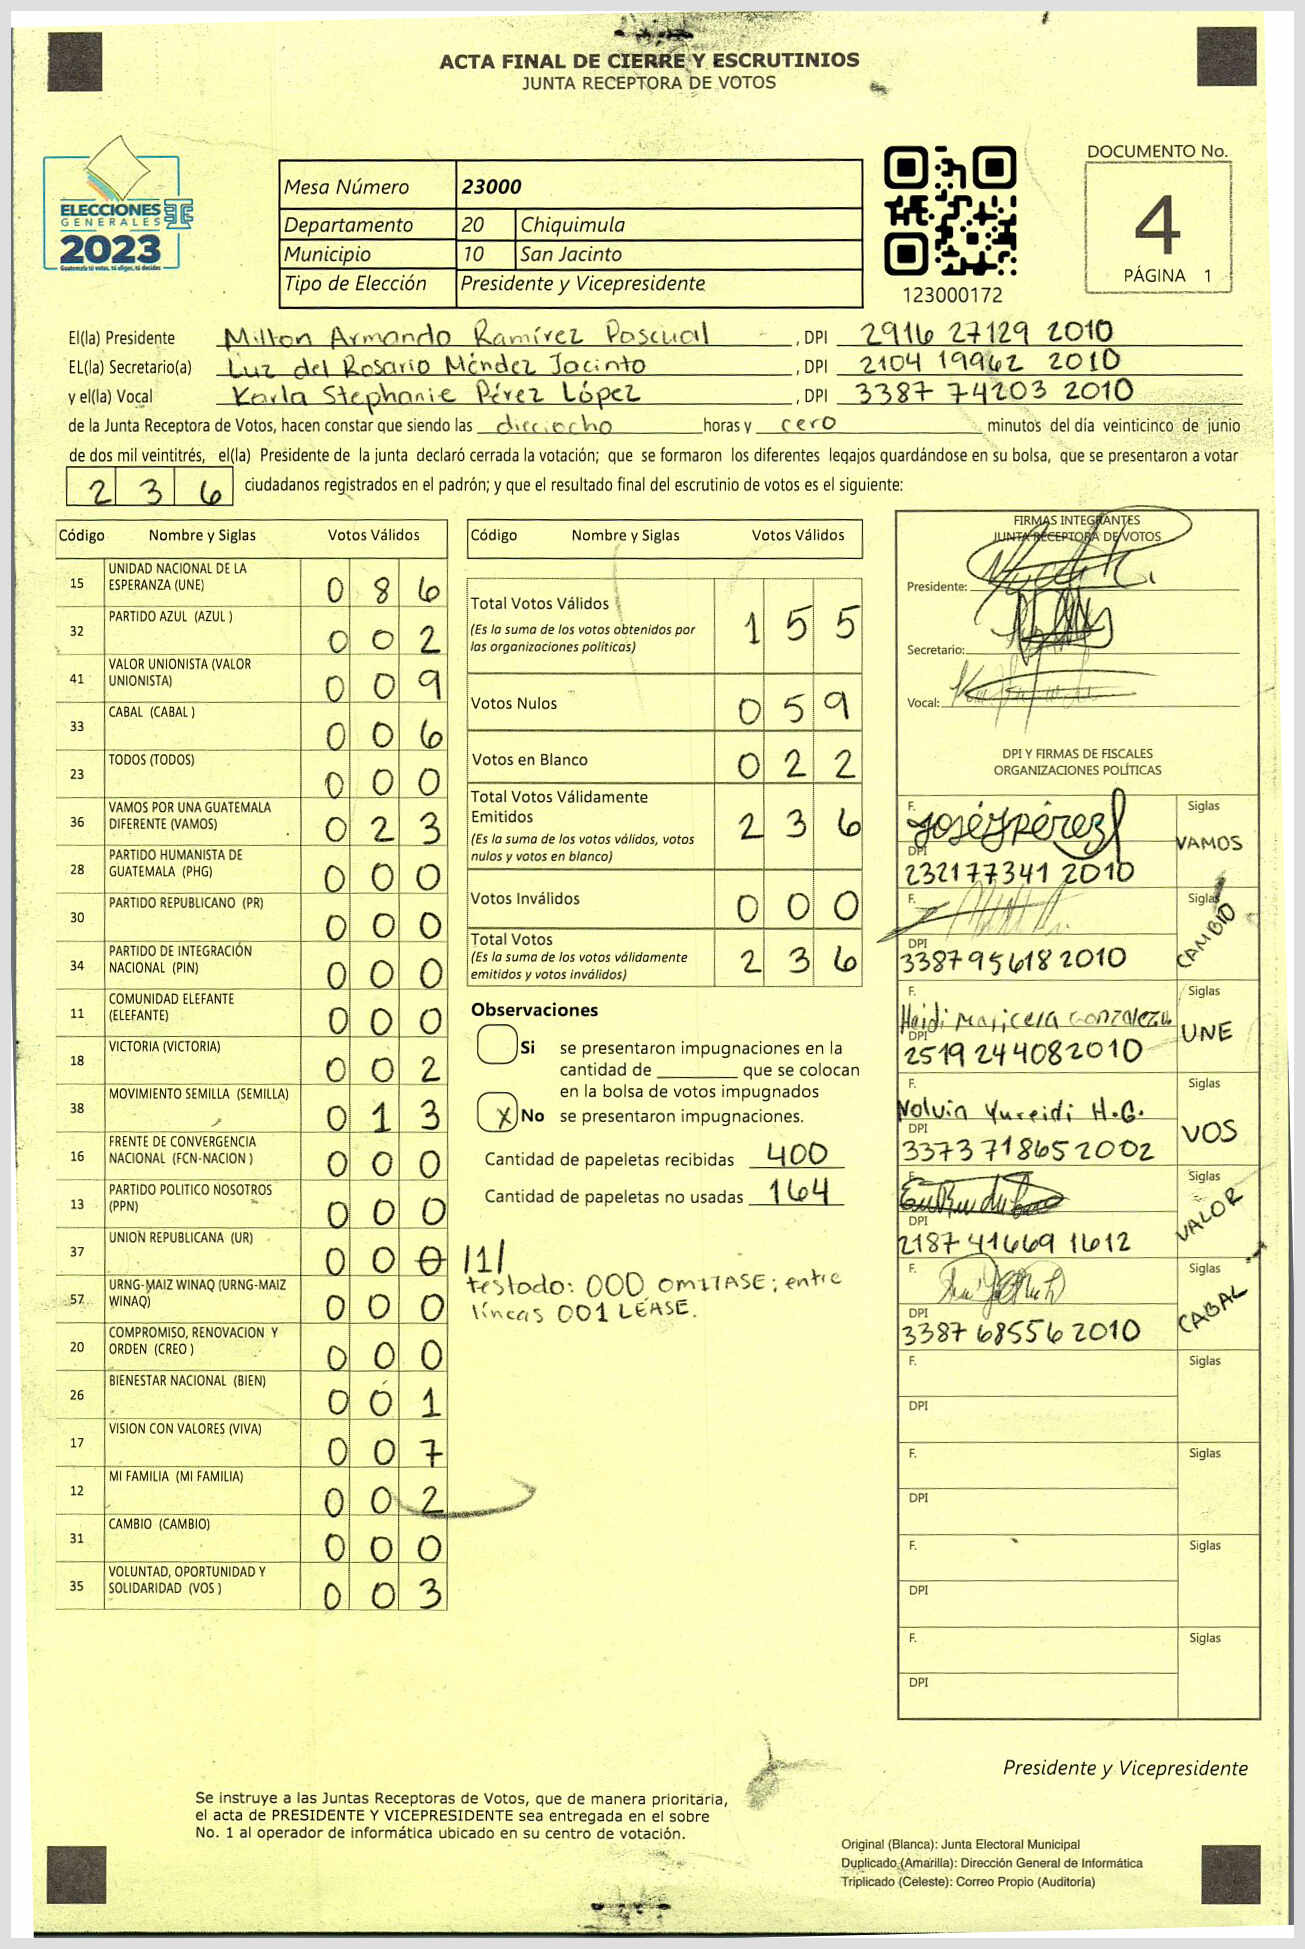 ACTA FINAL DE CIERRE Y ESCRUTINIOS
JUNTA RECEPTORA DE VOTOS
ELECCIONES
GENERALES
2023
Guatemala tú votas, tú eliges, tú decides
Mesa Número 23000
Departamento 20 Chiquimula
Municipio 10 San Jacinto
Tipo de Elección Presidente y Vicepresidente
123000172
DOCUMENTO No.
4
PÁGINA 1
El(la) Presidente Milton Armando Ramírez Pascual , DPI 2916 27129 2010
EL(la) Secretario(a) Luz del Rosario Méndez Jacinto , DPI 2104 19962 2010
y el(la) Vocal Karla Stephanie Pérez López , DPI 3387 74203 2010
de la Junta Receptora de Votos, hacen constar que siendo las dieciocho horas y cero minutos del día veinticinco de junio
de dos mil veintitrés, el(la) Presidente de la junta declaró cerrada la votación; que se formaron los diferentes legajos quardándose en su bolsa, que se presentaron a votar
2 3 6 ciudadanos registrados en el padrón; y que el resultado final del escrutinio de votos es el siguiente:
Código Nombre y Siglas Votos Válidos
15 UNIDAD NACIONAL DE LA
ESPERANZA (UNE) 0 8 6
32 PARTIDO AZUL (AZUL ) 0 0 2
41 VALOR UNIONISTA (VALOR
UNIONISTA) 0 0 9
33 CABAL (CABAL ) 0 0 6
23 TODOS (TODOS) 0 0 0
36 VAMOS POR UNA GUATEMALA
DIFERENTE (VAMOS) 0 2 3
28 PARTIDO HUMANISTA DE
GUATEMALA (PHG) 0 0 0
30 PARTIDO REPUBLICANO (PR) 0 0 0
34 PARTIDO DE INTEGRACIÓN
NACIONAL (PIN) 0 0 0
11 COMUNIDAD ELEFANTE
(ELEFANTE) 0 0 0
18 VICTORIA (VICTORIA) 0 0 2
38 MOVIMIENTO SEMILLA (SEMILLA) 0 1 3
16 FRENTE DE CONVERGENCIA
NACIONAL (FCN-NACION ) 0 0 0
13 PARTIDO POLITICO NOSOTROS
(PPN) 0 0 0
37 UNION REPUBLICANA (UR) 0 0 0 /1/
57 URNG-MAIZ WINAQ (URNG-MAIZ
WINAQ) 0 0 0
20 COMPROMISO, RENOVACION Y
ORDEN (CREO ) 0 0 0
26 BIENESTAR NACIONAL (BIEN) 0 0 1
17 VISION CON VALORES (VIVA) 0 0 7
12 MI FAMILIA (MI FAMILIA) 0 0 2
31 CAMBIO (CAMBIO) 0 0 0
35 VOLUNTAD, OPORTUNIDAD Y
SOLIDARIDAD (VOS ) 0 0 3
Código Nombre y Siglas Votos Válidos
Total Votos Válidos 1 5 5
(Es la suma de los votos obtenidos por
las organizaciones políticas)
Votos Nulos 0 5 9
Votos en Blanco 0 2 2
Total Votos Válidamente
Emitidos 2 3 6
(Es la suma de los votos válidos, votos
nulos y votos en blanco)
Votos Inválidos 0 0 0
Total Votos 2 3 6
(Es la suma de los votos válidamente
emitidos y votos inválidos)
Observaciones
Si se presentaron impugnaciones en la
cantidad de ________ que se colocan
en la bolsa de votos impugnados
X No se presentaron impugnaciones.
Cantidad de papeletas recibidas 400
Cantidad de papeletas no usadas 164
testado: 000 OMITASE; entre
líneas 001 LEASE.
FIRMAS INTEGRANTES
JUNTA RECEPTORA DE VOTOS
Presidente:
Secretario:
Vocal:
DPI Y FIRMAS DE FISCALES
ORGANIZACIONES POLÍTICAS
F. Siglas
VAMOS
DPI
232177341 2010
F. Siglas
CAMBIO
DPI
3387956182010
F. Siglas
Heidi Maricela Gonzalez
UNE
DPI
2519 244082010
F. Siglas
Nolvia Yureidi H.G.
VOS
DPI
3373 718652002
F. Siglas
VALOR
DPI
2187 41669 1612
F. Siglas
CABAL
DPI
3387 68556 2010
F. Siglas
DPI
F. Siglas
DPI
F. Siglas
DPI
F. Siglas
DPI
Presidente y Vicepresidente
Se instruye a las Juntas Receptoras de Votos, que de manera prioritaria,
el acta de PRESIDENTE Y VICEPRESIDENTE sea entregada en el sobre
No. 1 al operador de informática ubicado en su centro de votación.
Original (Blanca): Junta Electoral Municipal
Duplicado (Amarilla): Dirección General de Informática
Triplicado (Celeste): Correo Propio (Auditoría)